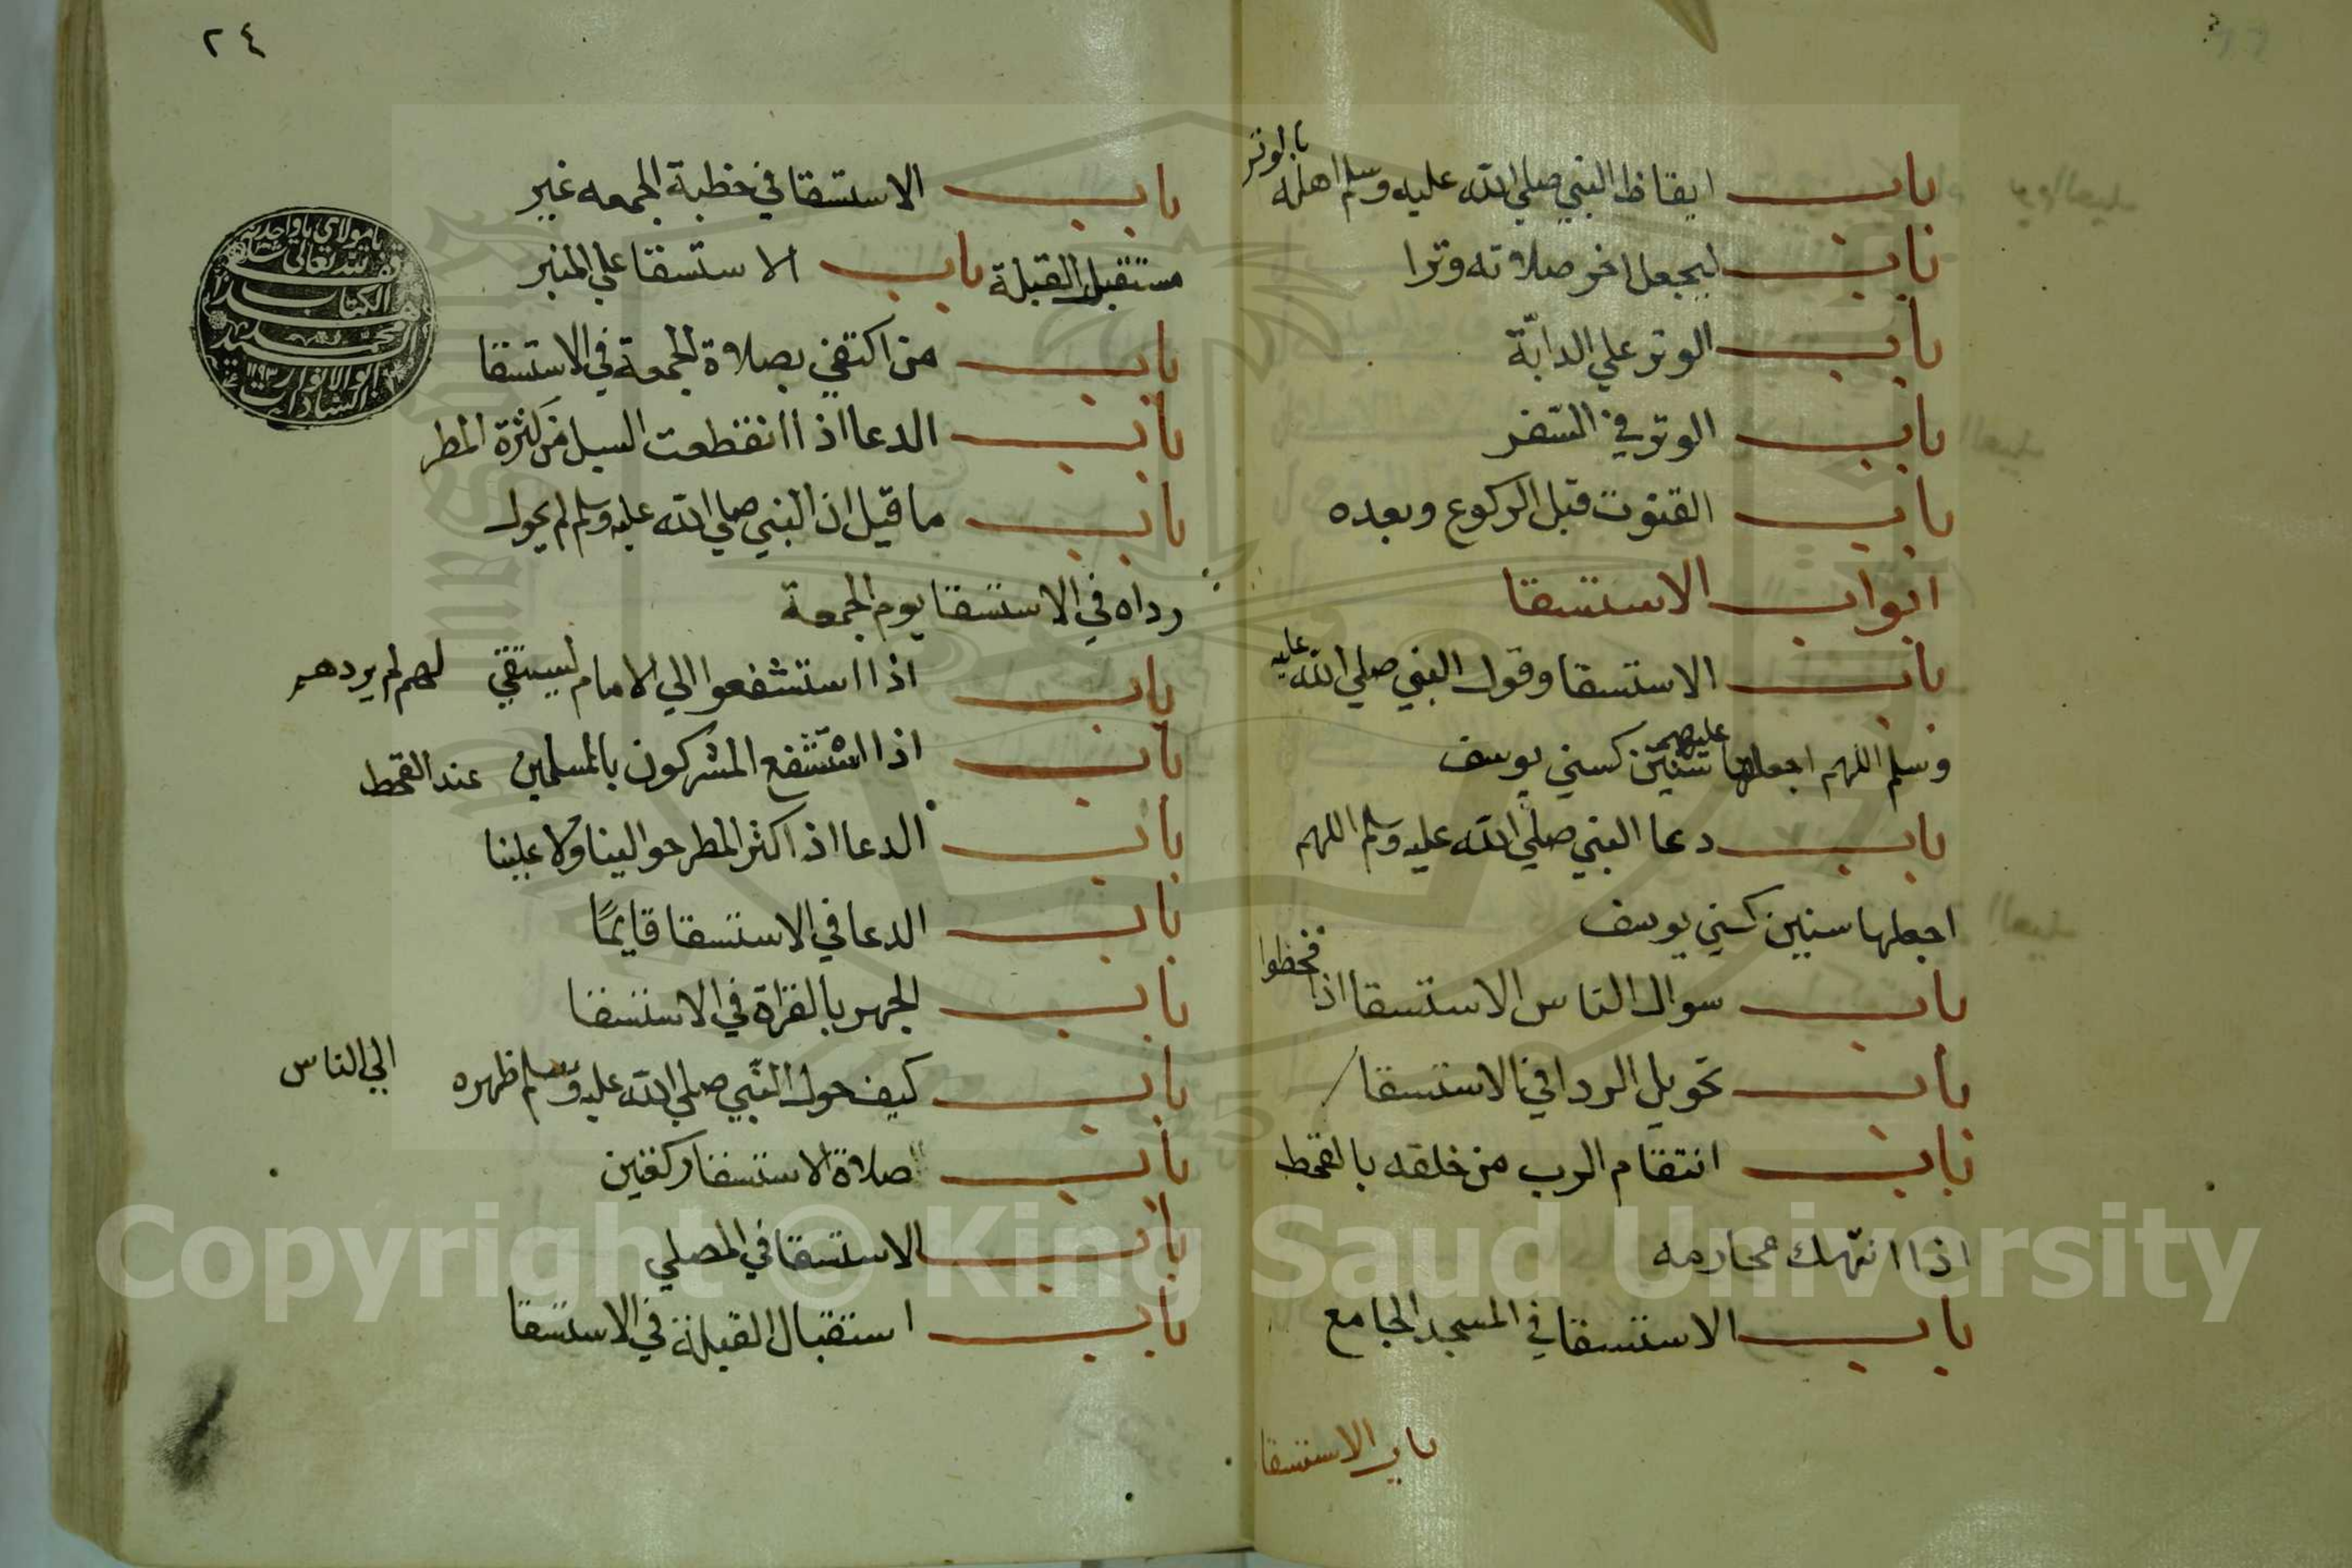 باب ايقاظ النبي صلي الله عليه وسلم اهله بالوتر
باب ليجعل اخر صلاته وترا
باب الوتر علي الدابّة
باب الوتر في السّفر
باب القنوت قبل الركوع وبعده
ابواب الاستسقا
باب الاستسقا وقول النبي صلي الله عليه
وسلم اللهم اجعلها عليهم سنين كسني يوسف
باب دعا النبي صلي الله عليه وسلم اللهم
اجعلها سنين كسني يوسف
باب سوال الناس الاستسقا اذا قحطوا
باب تحويل الردا في الاستسقا
باب انتقام الرب من خلقه بالقحط
اذا انتهك محارمه
باب الاستسقا في المسجد الجامع
باب الاستسقا
٢٤
باب الاستسقا في خطبة الجمعه غير
مستقبل القبلة باب الاستسقا علي المنبر
باب من اكتفي بصلاة الجمعة في الاستسقا
باب الدعا اذا انقطعت السبل من كثرة المطر
باب ما قيل ان النبي صلي الله عليه وسلم لم يحول
رداه في الاستسقا يوم الجمعة
باب اذا استشفعوا الي الامام ليستقي لهم لم يردهم
باب اذا استشفع المشركون بالمسلمين عند القحط
باب الدعا اذا كثر المطر حوالينا ولا علينا
باب الدعا في الاستسقا قايمًا
باب الجهر بالقراة في الاستسقا
باب كيف حول النبي صلي الله عليه وسلم ظهره الي الناس
باب صلاة الاستسقا ركعتين
باب الاستسقا في المصلي
باب استقبال القبلة في الاستسقا
Copyright © King Saud University